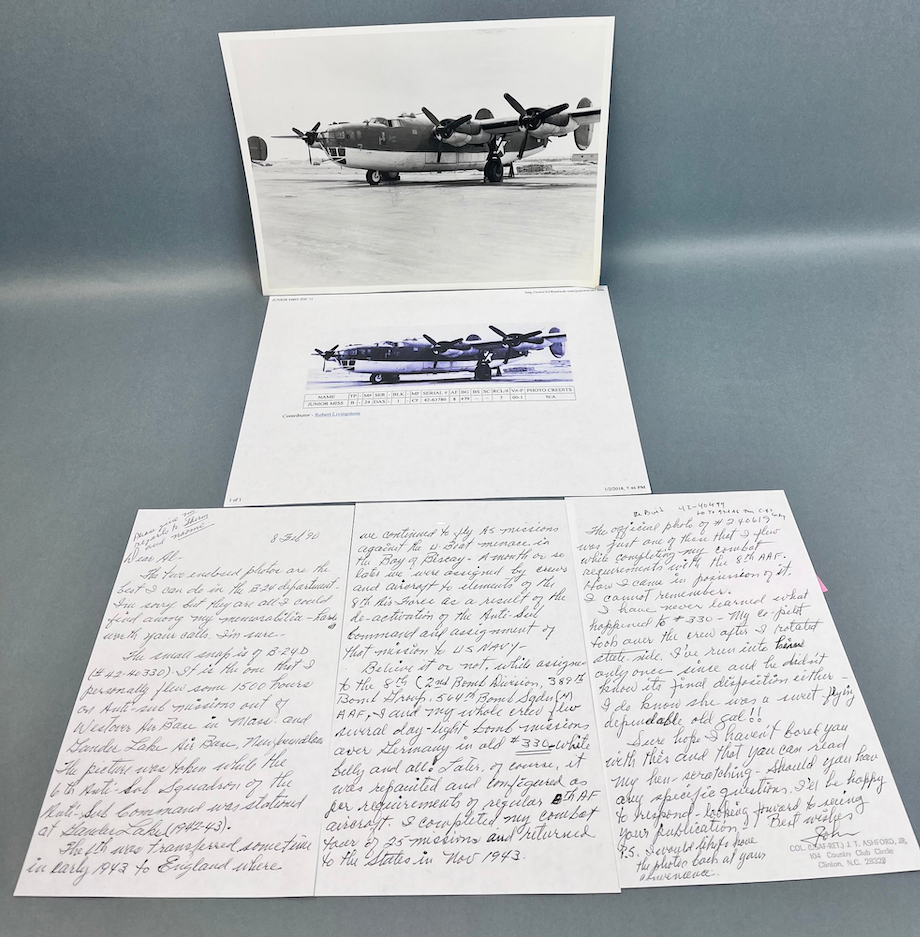 JUNIOR MISS
1 of 1
NAME TP - M# SER - BLK - MF SERIAL # AF BG BS SC RCL/# V#-P PHOTO CREDITS
JUNIOR MISS B - 24 DAS - 1 - CF 42-63780 8 479 -- -- ? 00-1 TCA
Contributor - Robert Livingstone
1/2/2018, 7:46 PM
8 Feb 90
Dear Al.
The two enclosed photos are the
best I can do in the B-24 department.
I'm sorry but they are all I could
find among my memorabilia - hard
worth your calls, I'm sure.
The small snap is of B-24D
(#42-40330). It is the one that I
personally flew some 1500 hours
on Anti-sub missions out of
Westover Air Base in Mass. and
Gander Lake Air Base, Newfoundland
The picture was taken while the
6th Anti-Sub Squadron of the
Anti-Sub Command was stationed
at Gander Lake (1942-43).
The 6th was transferred sometime
in early 1943 to England where
we continued to fly AS missions
against the U-Boat menace in
the Bay of Biscay. A month or so
later we were assigned by crews
and aircraft to elements of the
8th Air Force as a result of the
de-activation of the Anti-Sub
Command and assignment of
that mission to U.S. NAVY.
Believe it or not, while assigned
to the 8th (2nd Bomb Division, 389th
Bomb Group, 564th Bomb Sqdn (H)
AAF, I and my whole crew flew
several day-light bomb missions
over Germany in old #330 - white
belly and all! Later, of course, it
was repainted and configured as
per requirements of regular 8th AF
aircraft. I completed my combat
tour of 25 missions and returned
to the States in Nov 1943.
42-40619
The official photo of #240619
was just one of them that I flew
while completing my combat
requirements with the 8th AAF.
How I came in possession of it,
I cannot remember.
I have never learned what
happened to #330 - My co-pilot
took over the crew after I rotated
state-side. I've run into him
only once since and he didn't
know its final disposition either -
I do know she was a sweet flying
dependable old gal!!
Sure hope I haven't bored you
with this and that you can read
my hen-scratching - Should you have
any specific questions, I'll be happy
to respond - looking forward to seeing
your publication! Best wishes
John
P.S. I would like to have
the photos back at your
convenience.
COL. (USAF-RET.) J. T. ASHFORD, JR.
104 Country Club Circle
Clinton, N.C. 28328